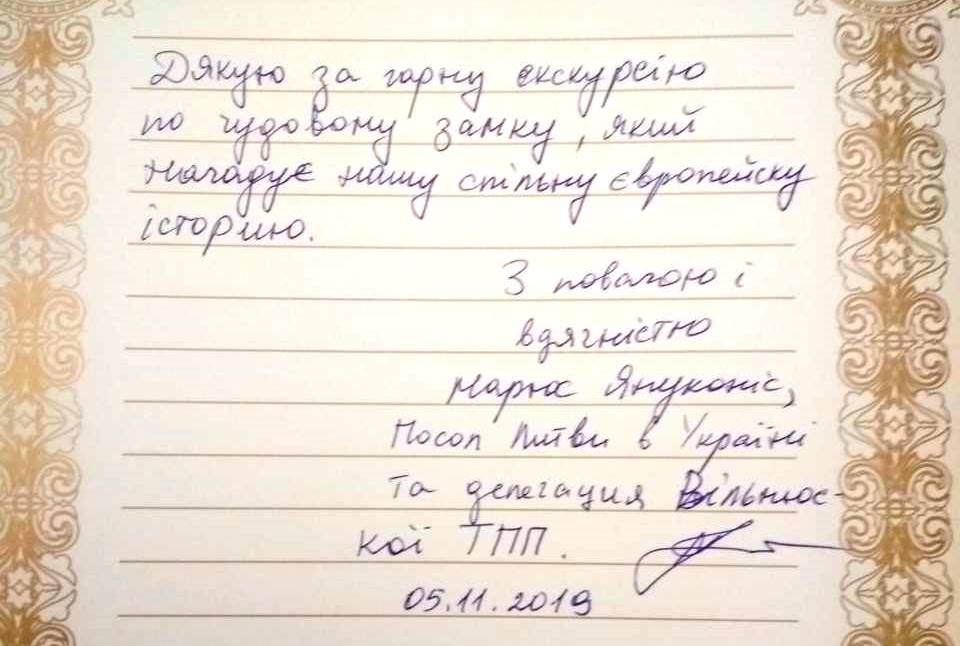 Дякую за гарну екскурсію
по чудовому замку, який
нагадує нашу спільну європейску
історию.
З повагою і
вдягністю
Марюс Януконіс,
Посол Литви в Україні
та делегация Вільнюс-
кої ТПП.
05.11.2019